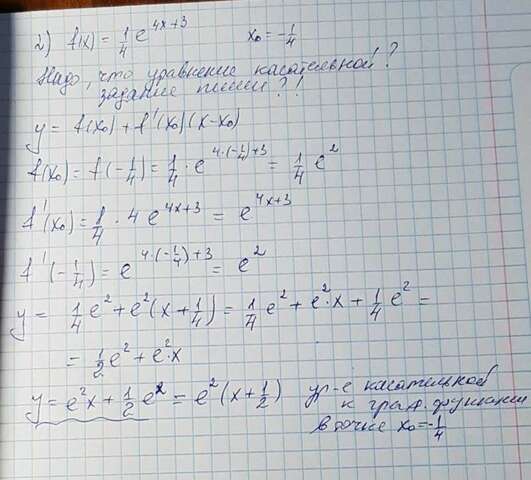 2) f(x) = 1/4 e^(4x+3) x₀ = -1/4
Надо, что уравнение касательной?
задание пиши?!
y = f(x₀) + f'(x₀)(x-x₀)
f(x₀) = f(-1/4) = 1/4 · e^(4·(-1/4)+3) = 1/4 e²
f'(x₀) = 1/4 · 4 e^(4x+3) = e^(4x+3)
f'(-1/4) = e^(4·(-1/4)+3) = e²
y = 1/4 e² + e²(x + 1/4) = 1/4 e² + e²·x + 1/4 e² =
= 1/2 e² + e²·x
y = e²x + 1/2 e² = e²(x + 1/2) ур-е касательной
к граф. функции
в точке x₀ = -1/4